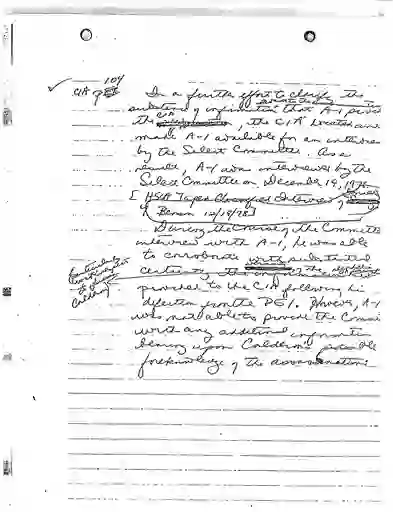 104
CIA
In a further effort to clarify the
substance of information that A-1 provided
the CIA, the CIA located and
made A-1 available for an interview
by the Select Committee. As a
result, A-1 was interviewed by the
Select Committee on December 19, 1978
[HSCA Taped Classified Interview of
Person 12/19/78]
During the course of the Committee
interview with A-1, he was able
to corroborate with substantial
certainty the of the
provided to the CIA following his
defection from the DGI. However, A-1
was not able to provide the Committee
with any additional information
bearing upon Calderon's possible
foreknowledge of the assassination.